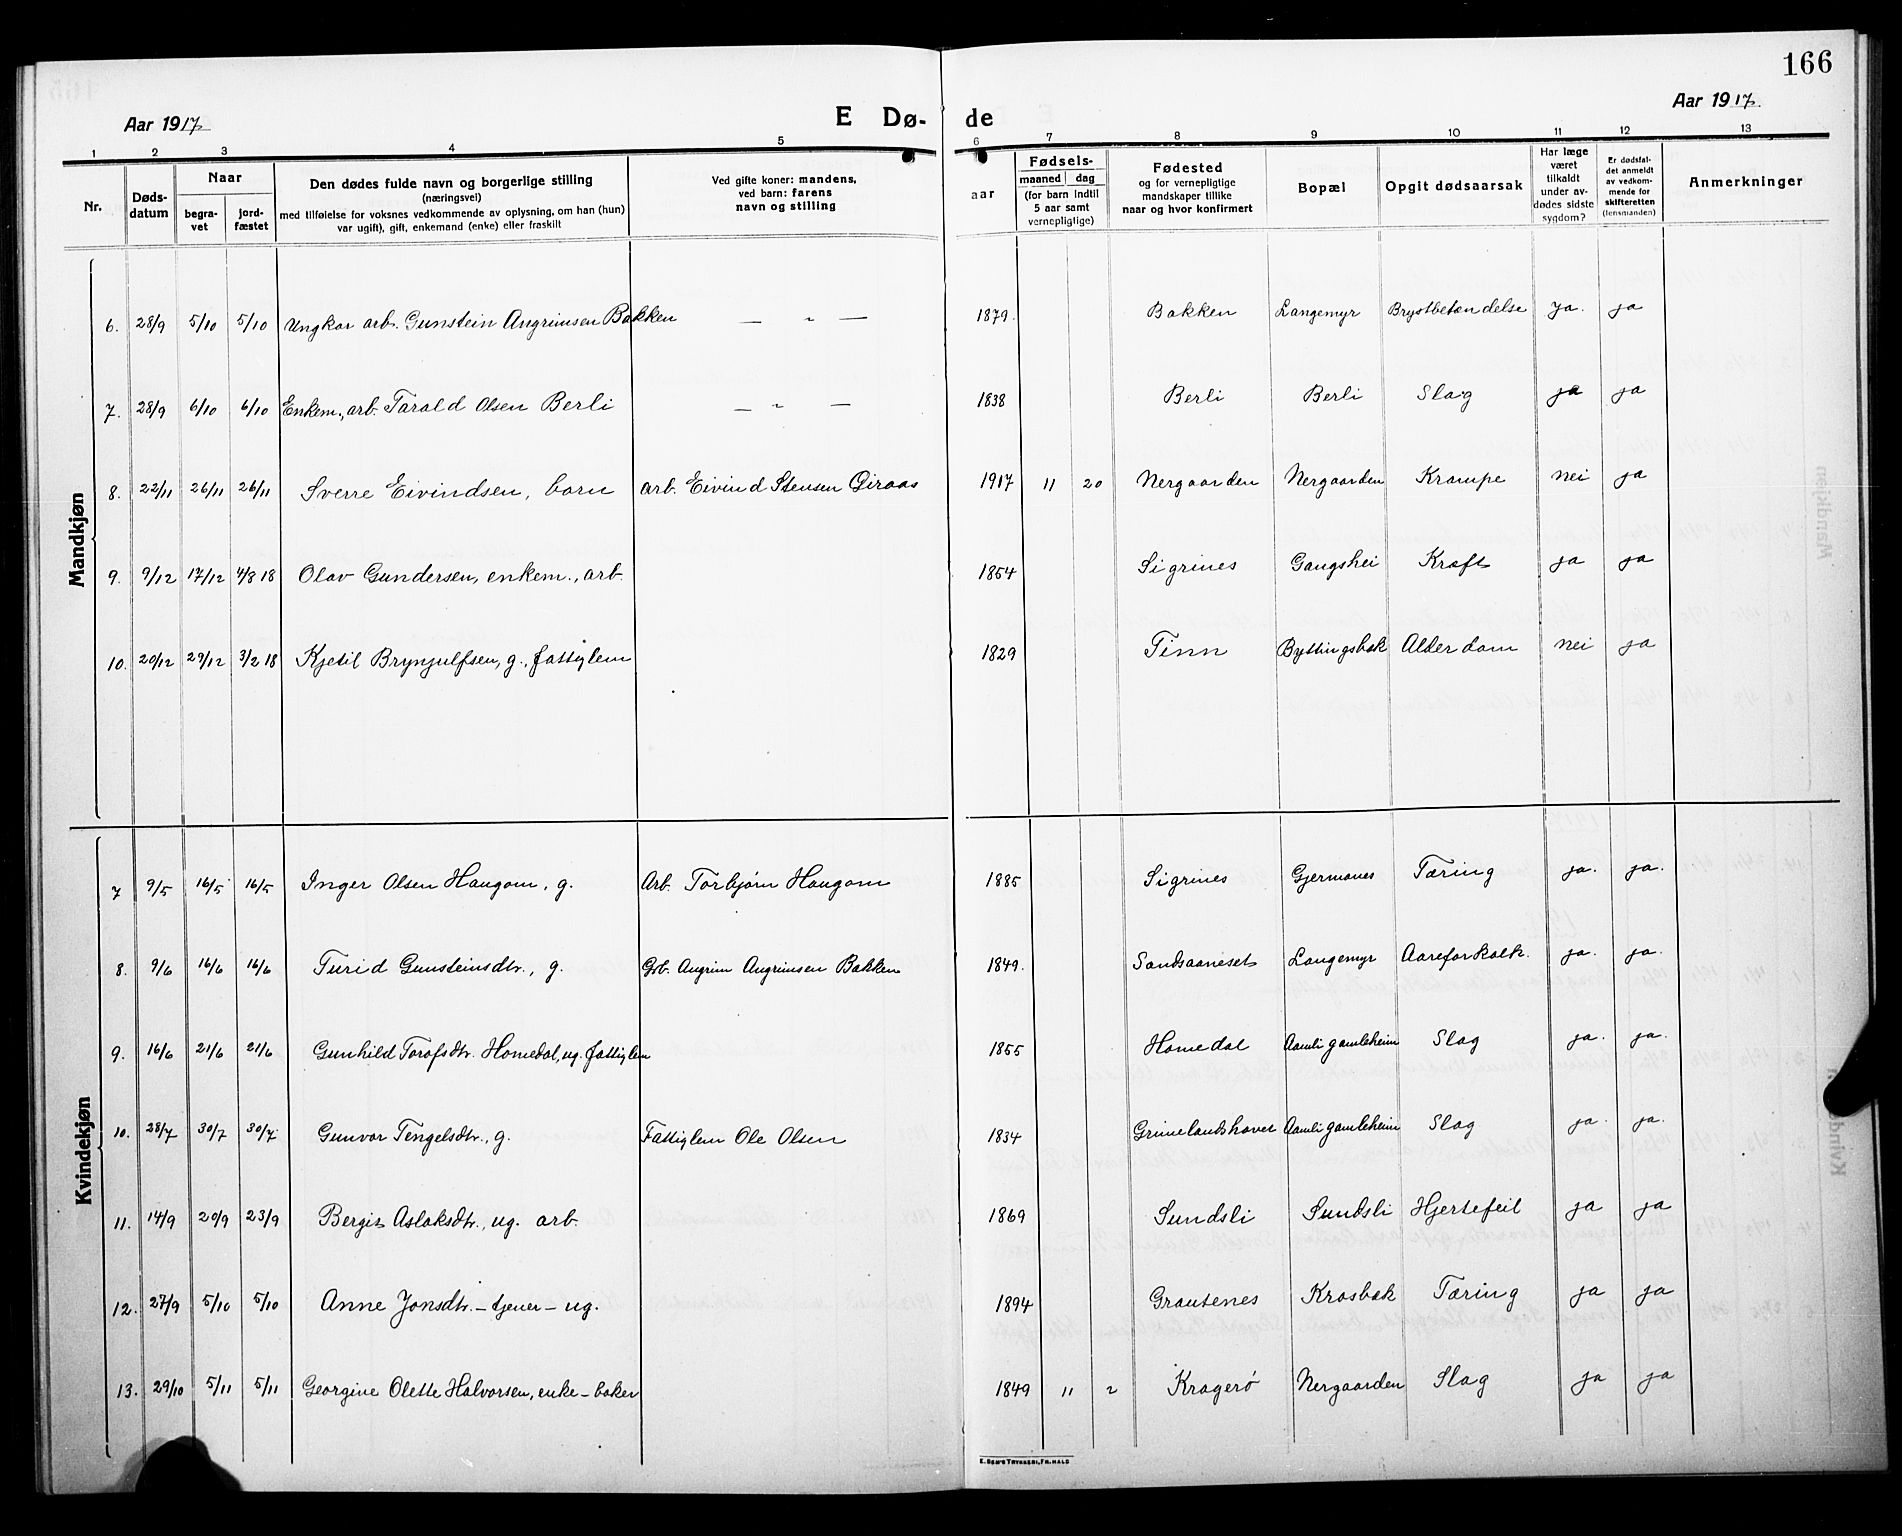 166
Aar 1917
E Dø-
de
Aar 1917.
1 2 3 4 5 6 7 8 9 10 11 12 13
Nr.
Døds-
datum
Naar
begra-
vet
jord-
fæstet
Den dødes fulde navn og borgerlige stilling
(næringsvei)
med tilføielse for voksnes vedkommende av oplysning, om han (hun)
var ugift), gift, enkemand (enke) eller fraskilt
Ved gifte koner: mandens,
ved barn: farens
navn og stilling
aar
Fødsels-
maaned dag
(for barn indtil
5 aar samt
vernepligtige)
Fødested
og for vernepligtige
mandskaper tillike
naar og hvor konfirmert
Bopæl
Opgit dødsaarsak
Har læge
været
tilkaldt
under av-
dødes sidste
sygdom?
Er dødsfal-
det anmeldt
av vedkom-
mende for
skifteretten
(lensmanden)
Anmerkninger
Mandkjøn
6. 28/9 5/10 5/10 Ungkar arb. Gunstein Angrimsen Bakken — „ — 1879. Bakken Langemyr Brystbetændelse ja. ja
7. 28/9 6/10 6/10 Enkem., arb. Tarald Olsen Berli — „ — 1838 Berli Berli Slag ja ja
8. 22/11 26/11 26/11 Sverre Eivindsen, barn arb. Eivind Stensen 1917 11 20 Nergaarden Nergaarden Krampe nei ja
9. 9/12 17/12 4/3 18 Olav Gundersen, enkem., arb. 1854 Sigrines Gangshei Kræft ja ja
10. 20/12 29/12 3/2 18 Kjetil Brynjulfsen, g., fattiglem 1829 Tinn Byttingsbæk Alderdom nei ja
Kvindekjøn
7 9/5 16/5 16/5 Inger Olsen Haugom, g. Arb. Torbjørn Haugom 1885 Sigrines Gjermones Tæring ja. ja.
8. 9/6 16/6 16/6 Turid Gunsteinsdtr., g. Grb. Angrim Angrimsen Bakken 1849. Sandsaaneset Langemyr Aareforkalk. ja. ja.
9. 16/6 21/6 21/6 Gunhild Torofsdtr. Homedal, ug. fattiglem 1855 Homedal Aamli gamleheim Slag ja. ja.
10. 28/7 30/7 30/7 Gunvor Tengelsdtr., g. Fattiglem Ole Olsen 1834 Grimelandshaver Aamli gamleheim Slag ja. ja.
11. 14/9 20/9 23/9 Bergit Aslaksdtr., ug. arb. 1869 Sundsli Sundsli Hjertefeil ja ja
12. 27/9 5/10 5/10 Anne Jonsdtr. – tjener – ug. 1894 Grautenes Krosbæk Tæring ja ja
13. 29/10 5/11 5/11 Georgine Olette Halvorsen, enke – baker 1849 11 2 Kragerø Nergaarden Slag ja ja
E. SEM'S TRYKKERI, FR.HALD